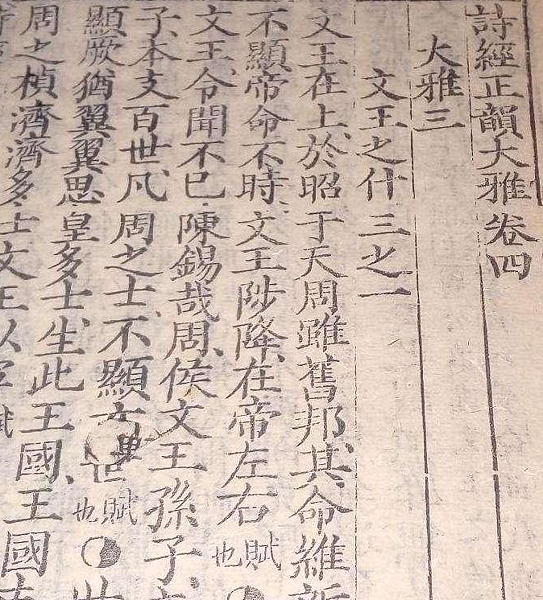 詩經正韻大雅卷四
大雅三
文王之什三之一
文王在上、於昭于天周雖舊邦、其命維新
不顯帝命不時文王陟降、在帝左右賦也
文王令聞不已、陳錫哉周、侯文王孫子、
子、本支百世、凡周之士、不顯世賦也○世
顯厥猶翼翼思皇多士、生此王國、王國
周之楨濟濟多士文王以寧